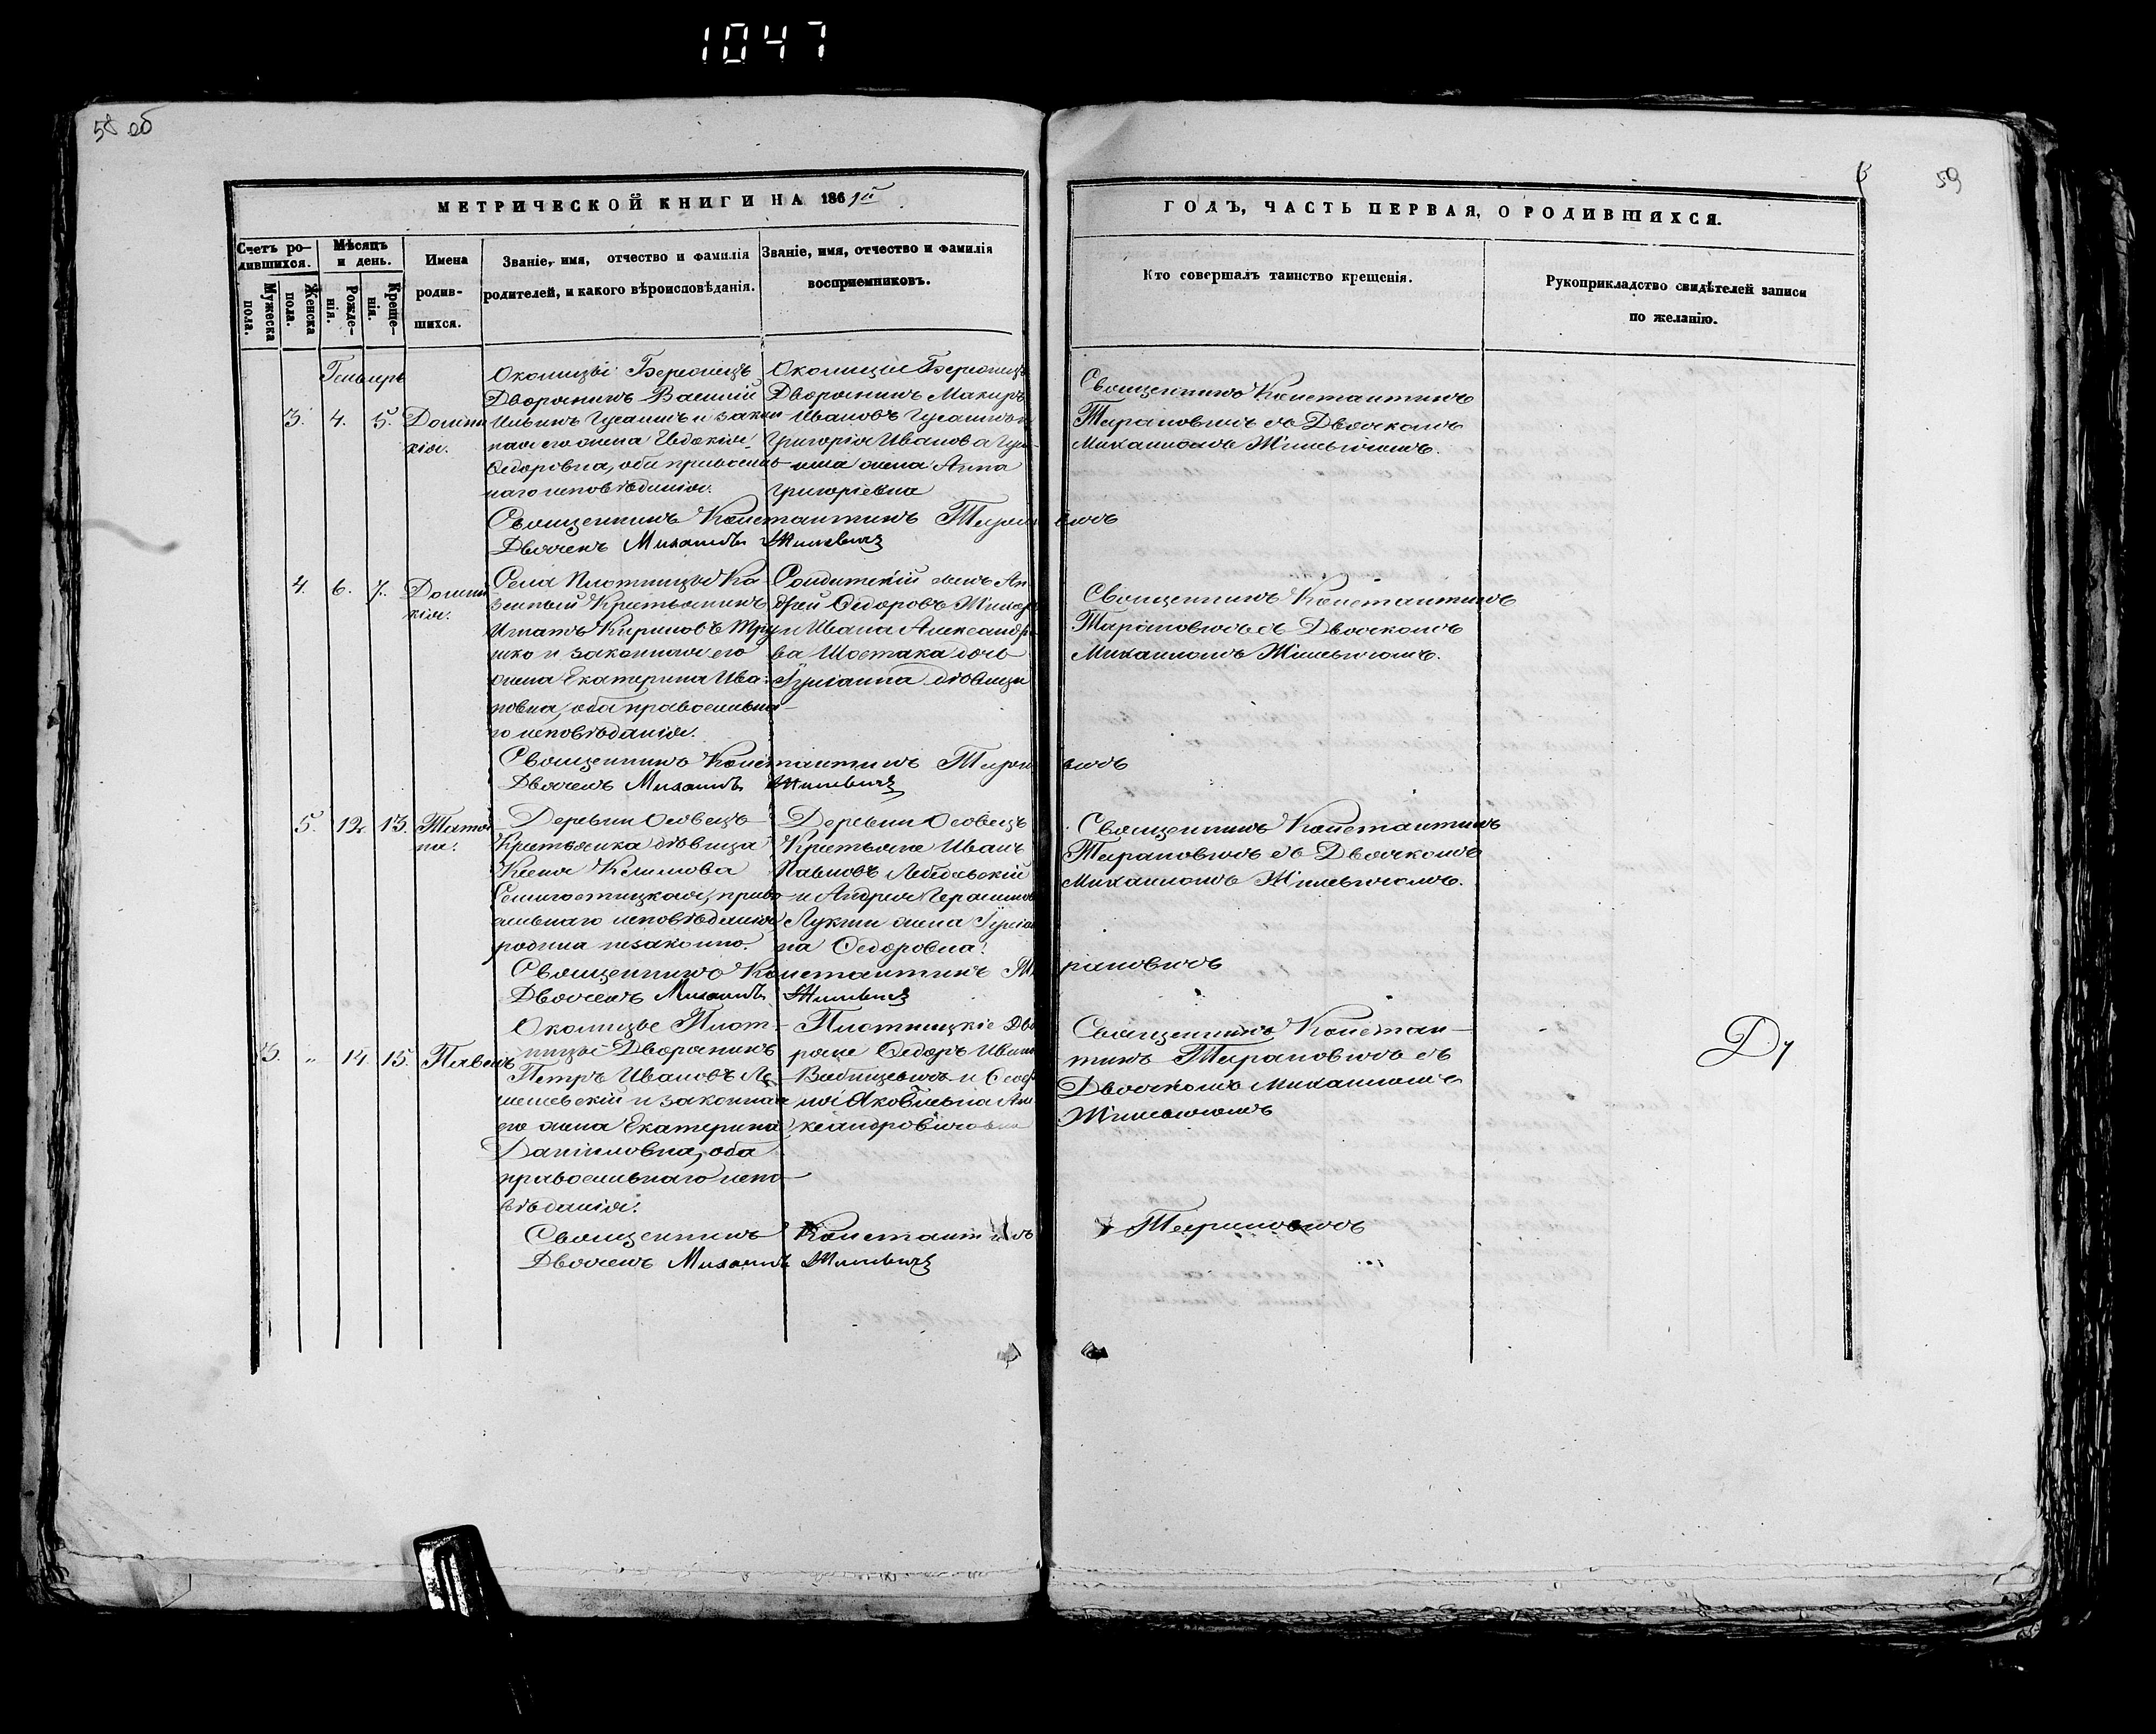 1047
58 об
59
МЕТРИЧЕСКОЙ КНИГИ НА 1861й
Счетъ родившихся.
Мужеска пола.
Женска пола.
Мѣсяцъ и день.
Рожденія.
Крещенія.
Имена родившихся.
Званіе, имя, отчество и фамилія
родителей, и какого вѣроисповѣданія.
Званіе, имя, отчество и фамилія
восприемниковъ.
ГОДЪ, ЧАСТЬ ПЕРВАЯ, О РОДИВШИХСЯ.
Кто совершалъ таинство крещенія.
Рукоприкладство свидѣтелей записи
по желанію.
Генварь
3. 4. 5. Домни
кія.
Околицы
Дворянинъ Василій
Ильинъ и закон
ная его жена Евдокія
Ѳедоровна, оба православ
наго исповѣданія.
Околицы
Дворянинъ
Ивановъ
Григорія Иванова
жена Анна
Григоріевна
Священникъ Константинъ
Тарановичъ съ Дьячкомъ
Михаиломъ Жилевичемъ.
Священникъ Константинъ Тарановичъ
Дьячекъ Михаилъ Жилевичъ
4. 6. 7. Домни
кія.
Села Плотницы Ка
зенный Крестьянинъ
Игнатъ Кириловъ
и законная его
жена Екатерина Ива
новна, оба православна
го исповѣданія.
Солдатскій сынъ Ан
дрей Ѳедоровъ
и Ивана Александро
ва Шостака дочь
Іуліанна дѣвица
Священникъ Константинъ
Тарановичъ съ Дьячкомъ
Михаиломъ Жилевичомъ.
Священникъ Константинъ Тарановичъ
Дьячекъ Михаилъ Жилевичъ
5. 12. 13. Татья
на.
Деревни Осовецъ
Крестьянка дѣвица
Ксенія Климова
право
славнаго исповѣданія
родила незаконно.
Деревни Осовецъ
Крестьяне Иванъ
Павловъ
и Андрея Герасимов
жена Іуліан
на Ѳедоровна.
Священникъ Константинъ
Тарановичъ съ Дьячкомъ
Михаиломъ Жилевичомъ.
Священникъ Константинъ Тарановичъ
Дьячекъ Михаилъ Жилевичъ
3. „ 14. 15. Павелъ
Околицы Плот
ницы Дворянинъ
Петръ Ивановъ Ле
и законная
его жена Екатерина
Даніиловна, оба
православнаго испо
вѣданія.
Плотницкіе Дво
ряне Ѳедоръ Иван
и
Яковлевна Але
ксандровичова
Священникъ Констан
тинъ Тарановичъ съ
Дьячкомъ Михаиломъ
Жилевичомъ
Священникъ Константинъ Тарановичъ
Дьячекъ Михаилъ Жилевичъ